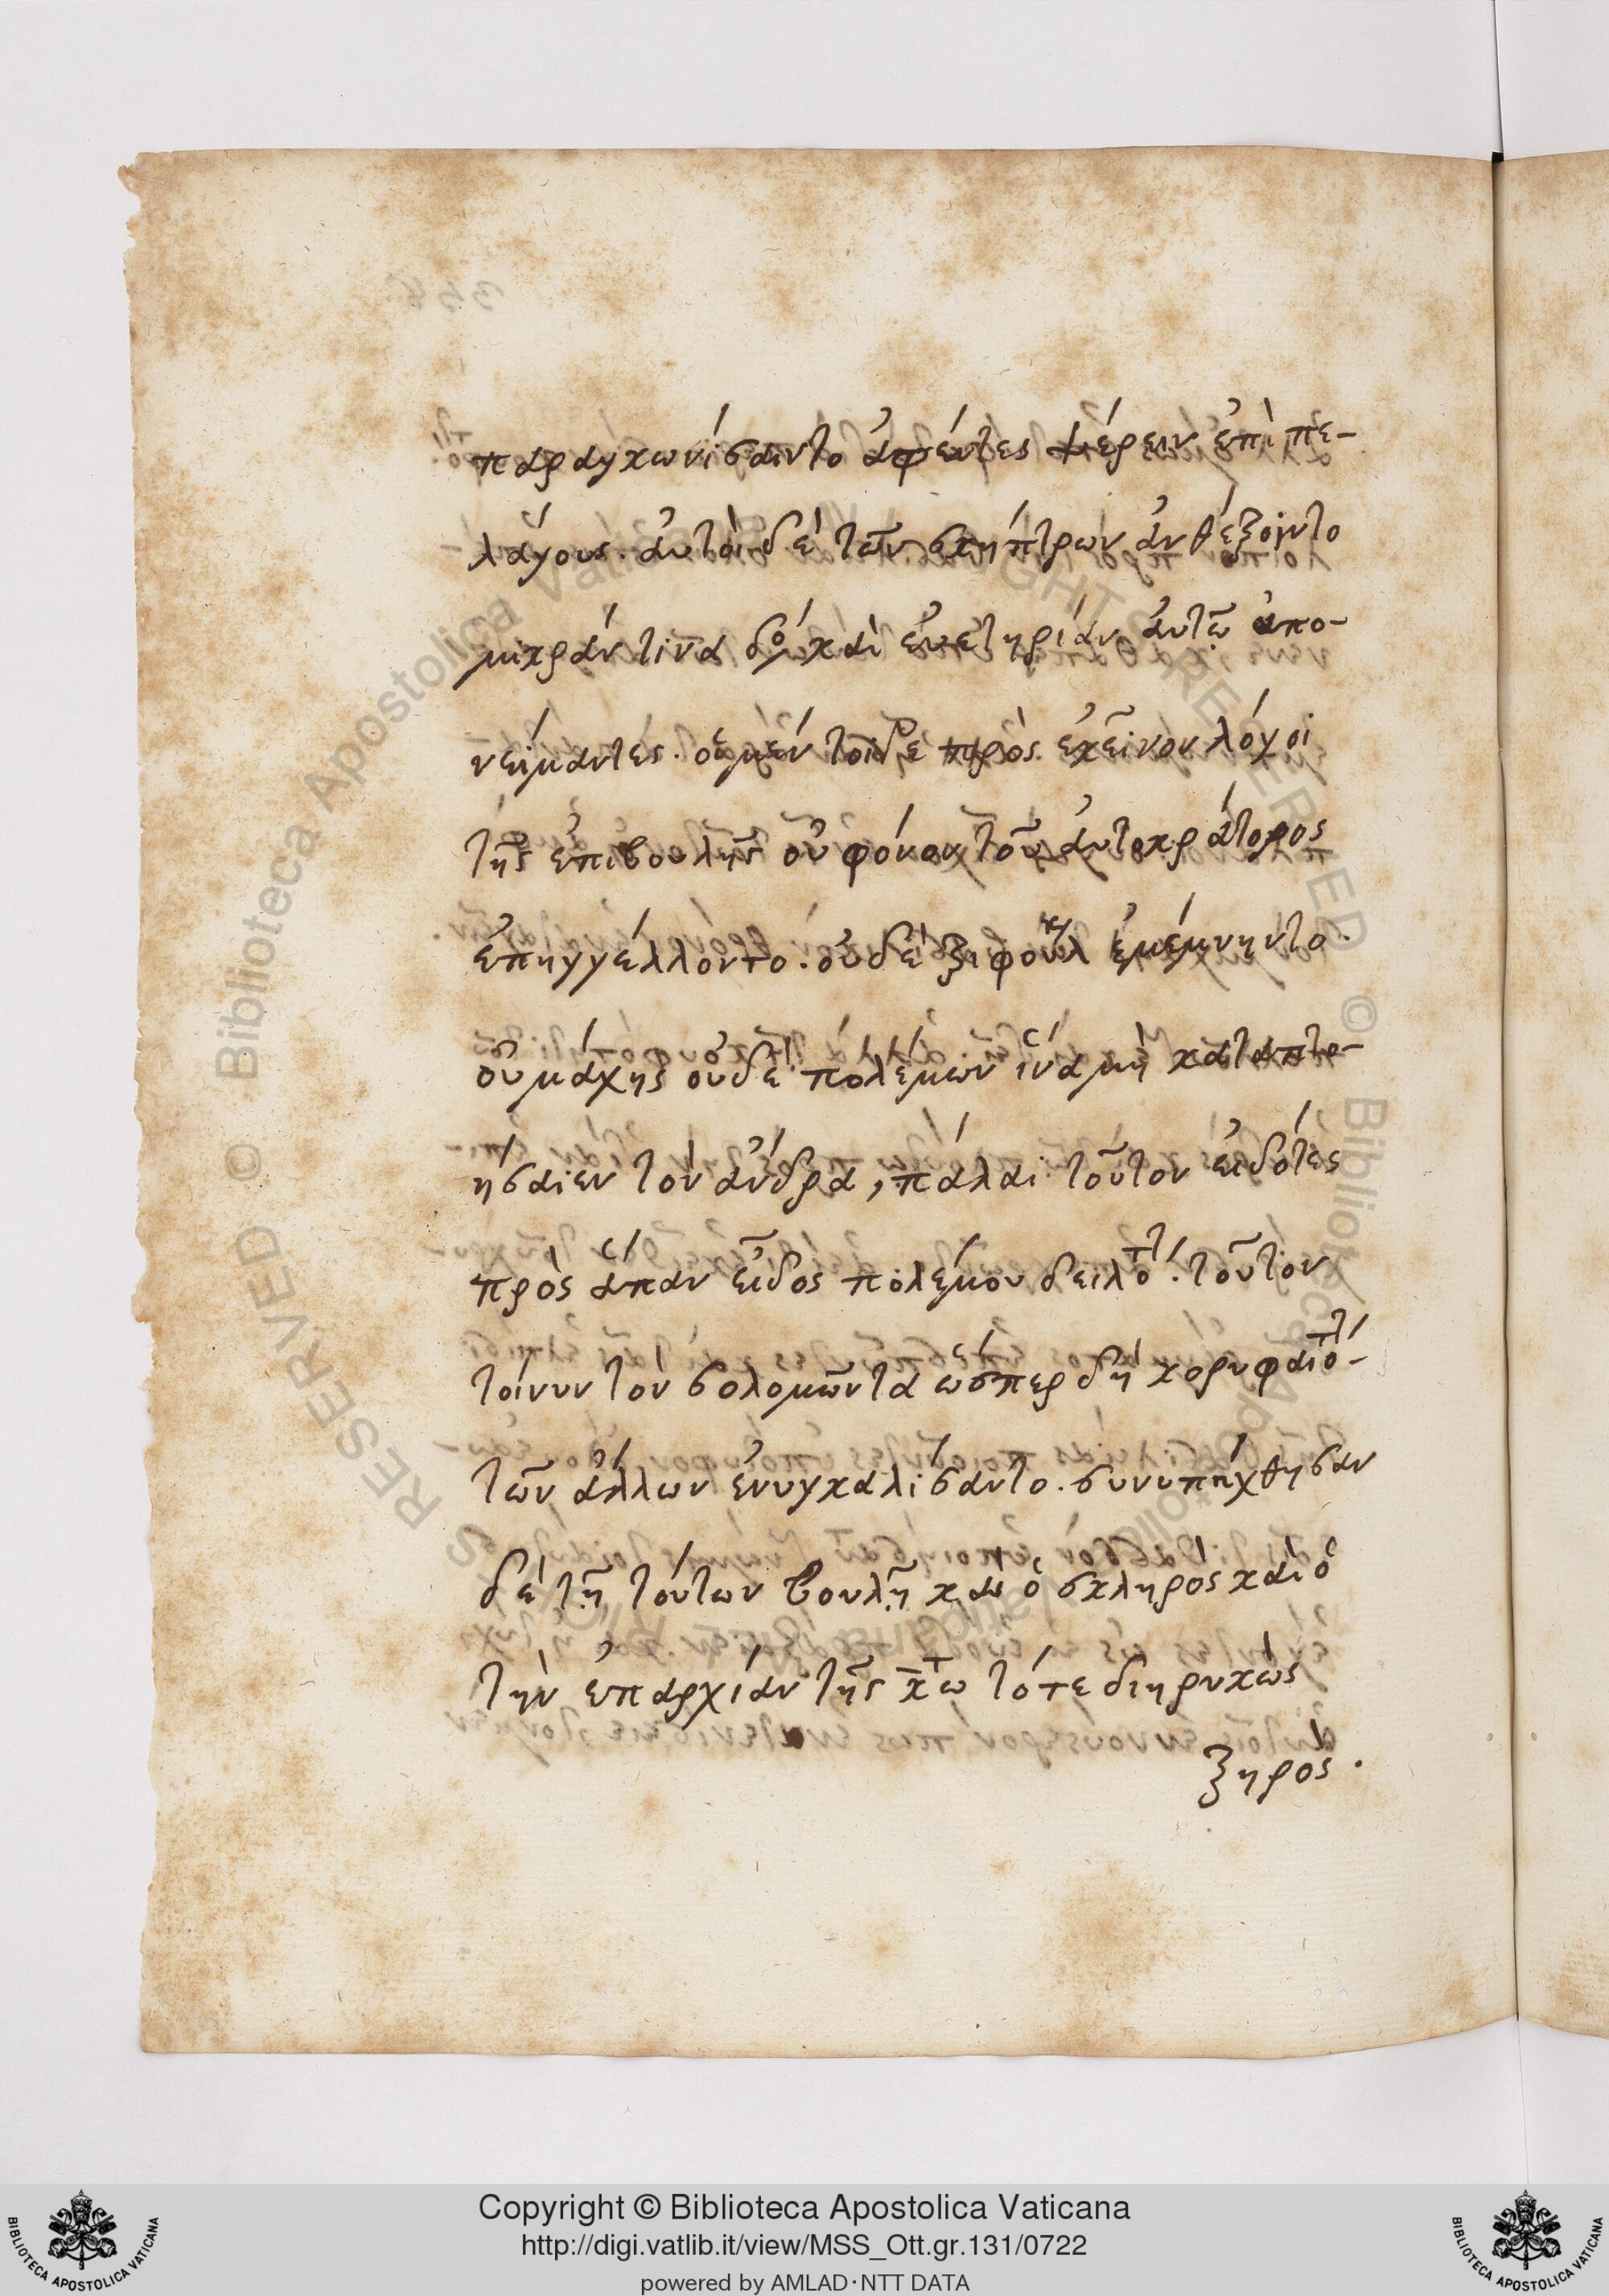 παραγκωνίσαιντο ἀφέντες φέρειν ἐπὶ πε-
λάγους. ἀυτοὶ δὲ τῶν σκήπτρων ἀνθέξοιντο
μικράν τινα δό καὶ ἐυετηρίαν ἀυτῷ ἀπο-
νείμαντες. οἱ μέν τοι δε πρὸς ἐκεῖνον λόγοι
τῆς ἐπιβουλῆς οὐ φόνον τοῦ ἀυτοκράτορος
ἐπηγγέλλοντο. οὐδὲ ξιφουλκ ἐμέμνηντο.
οὐ μάχης οὐδὲ πολέμων ἵνα μὴ καταπτο-
ήσαιεν τὸν ἄνδρα, πάλαι τοῦτον εἰδότες
πρὸς ἅπαν εἶδος πολέμου δειλότ. τοῦτον
τοίνυν τὸν σολομῶντα ὥσπερ δὴ κορυφαιότ-
τῶν ἄλλων ἐνυγκαλίσαντο. συνυπήχθησαν
δὲ τῇ τούτων βουλῇ καὶ ὁ σκληρὸς καὶ ὁ
τὴν ἐπαρχίαν τῆς κτω τότε διηρυκὼς
ξηρός.
Copyright © Biblioteca Apostolica Vaticana
http://digi.vatlib.it/view/MSS_Ott.gr.131/0722
powered by AMLAD·NTT DATA
BIBLIOTECA APOSTOLICA VATICANA
BIBLIOTECA APOSTOLICA VATICANA